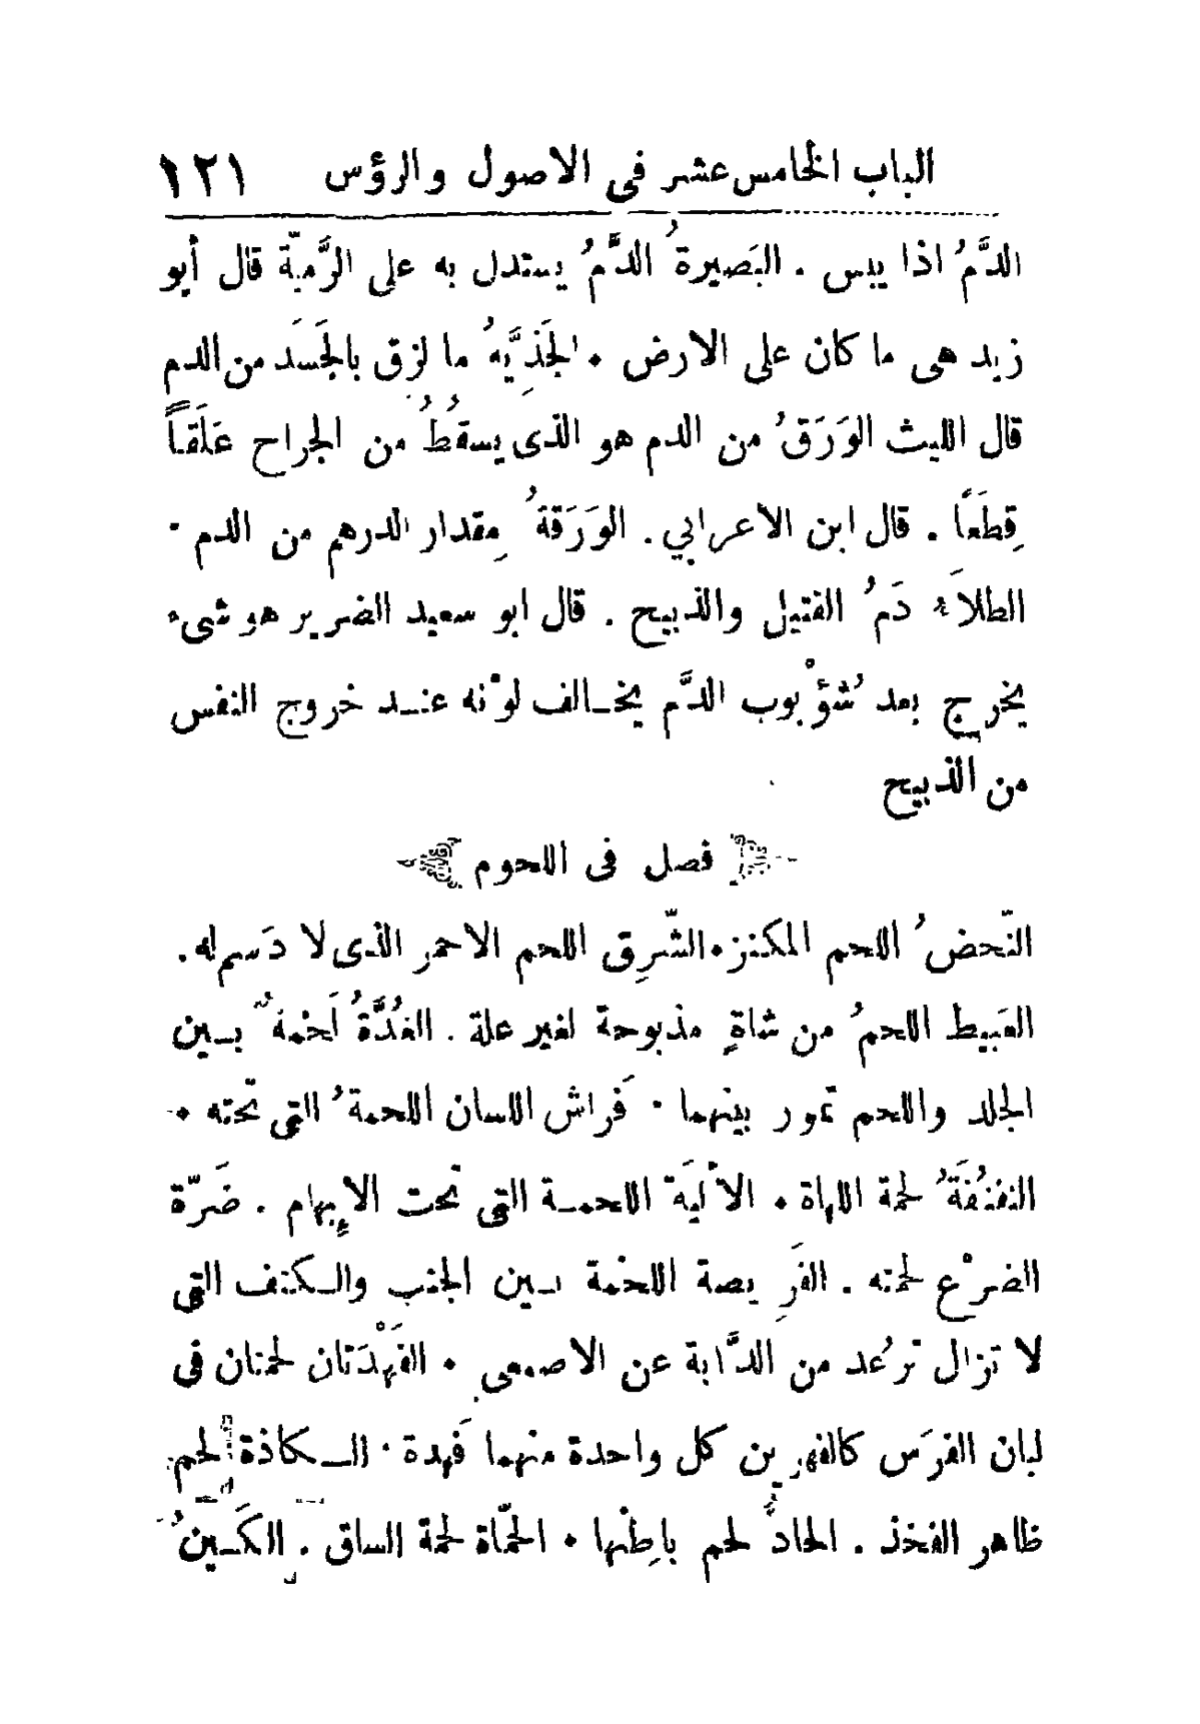 الباب الخامس عشر فى الاصول والرؤس ١٢١
الدَّمُ اذا يبس . البَصيرةُ الدَّمُ يستدل به على الرَّميّة قال أبو
زيد هى ما كان على الارض . الجَذِيَّهُ ما لزق بالجَسَد من الدم
قال الليث الوَرَقُ من الدم هو الذى يسقُطُ من الجراح عَلَقاً
قِطَعاً . قال ابن الاعرابي . الوَرَقةُ مِقدار الدرهم من الدم .
الطلاَء دَمُ القتيل والذبيح . قال ابو سعيد الضرير هو شىء
يخرج بعد شُؤْبوب الدَّم يخالف لوْنه عند خروج النفس
من الذبيح
فصل فى اللحوم
النّحضُ اللحم المكتنز . الشّرِق اللحم الاحمر الذى لا دَسم له .
العَبيط اللحمُ من شاةٍ مذبوحة لغير علة . الغُدَّةُ لَحْمةٌ بين
الجلد واللحم تمور بينهما . فَراش اللسان اللحمةُ التى تحته .
النغنُغَةُ لحمة اللهاة . الأليَة اللحمة التى تحت الإبهام . ضَرّة
الضرْع لحمته . الفَرِيصة اللحْمة بين الجنب والكتف التى
لا تزال ترُعد من الدَّابة عن الاصمعى . الفَهْدَتان لحمتان فى
لبان الفرَس كالفهرين كل واحدة منهما فَهدة . الكاذة لحم
ظاهر الفخذ . الحاذُ لحم باطِنها . الحمّاة لحمة الساق . الكَينُ